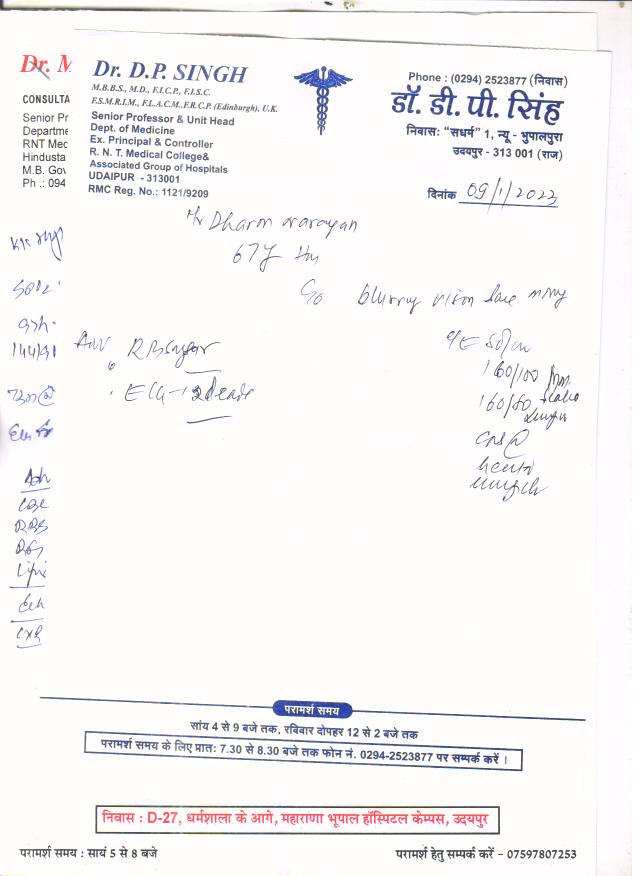 Dr. M
CONSULTA
Senior Pr
Departme
RNT Med
Hindusta
M.B. Gov
Ph .: 094
144/91
CBC
RBS
Dr. D.P. SINGH
M.B.B.S., M.D., F.I.C.P., F.I.S.C.
F.S.M.R.I.M., F.I.A.C.M., F.R.C.P. (Edinburgh), U.K.
Senior Professor & Unit Head
Dept. of Medicine
Ex. Principal & Controller
R. N. T. Medical College&
Associated Group of Hospitals
UDAIPUR - 313001
RMC Reg. No.: 1121/9209
Phone : (0294) 2523877 (निवास)
डॉ. डी. पी. सिंह
निवासः "सधर्म" 1, न्यू - भुपालपुरा
उदयपुर - 313 001 (राज)
दिनांक 09/1/2023
Mr Dharm Narayan
67y
C/o blurry vision
Adv RBSugar
ECG-12 lead
O/E
160/100 mm
160/80
CNS
परामर्श समय
सांय 4 से 9 बजे तक, रविबार दोपहर 12 से 2 बजे तक
परामर्श समय के लिए प्रात: 7.30 से 8.30 बजे तक फोन नं. 0294-2523877 पर सम्पर्क करें ।
निवास : D-27, धर्मशाला के आगे, महाराणा भूपाल हॉस्पिटल केम्पस, उदयपुर
परामर्श समय : सायं 5 से 8 बजे
परामर्श हेतु सम्पर्क करें - 07597807253